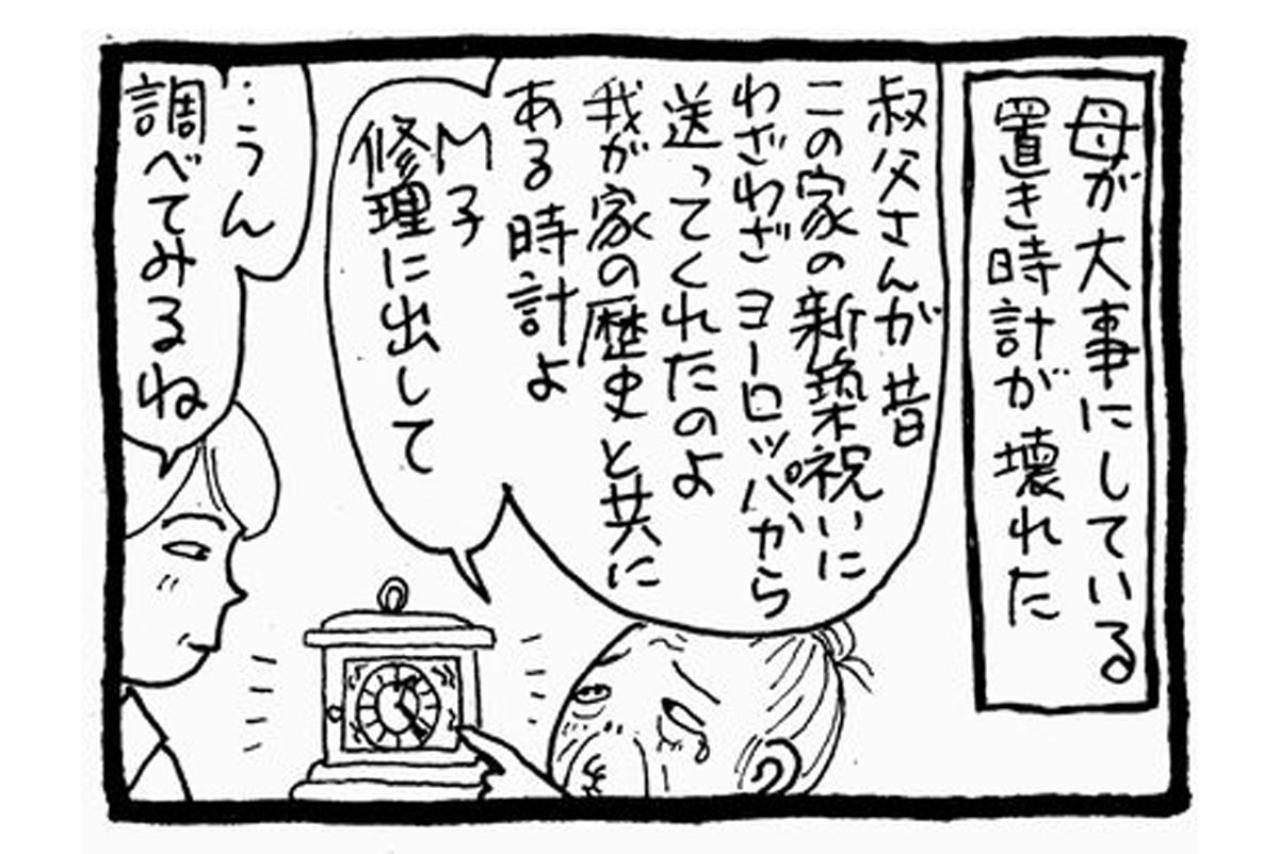 母が大事にしている
置き時計が壊れた
叔父さんが昔
この家の新築祝いに
わざわざヨーロッパから
送ってくれたのよ
我が家の歴史と共に
ある時計よ
M子
修理に出して
…うん
調べてみるね